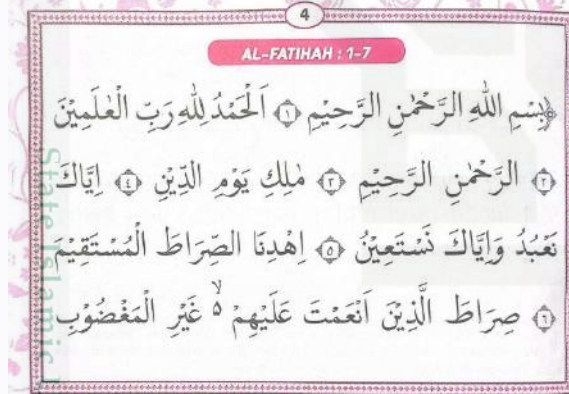 4
AL-FATIHAH : 1-7
﴿بِسْمِ اللهِ الرَّحْمٰنِ الرَّحِيْمِ ﴿١﴾ اَلْحَمْدُ لِلهِ رَبِّ الْعٰلَمِيْنَ
﴿٢﴾ الرَّحْمٰنِ الرَّحِيْمِ ﴿٣﴾ مٰلِكِ يَوْمِ الدِّيْنِ ﴿٤﴾ اِيَّاكَ
نَعْبُدُ وَاِيَّاكَ نَسْتَعِيْنُ ﴿٥﴾ اِهْدِنَا الصِّرَاطَ الْمُسْتَقِيْمَ
﴿٦﴾ صِرَاطَ الَّذِيْنَ اَنْعَمْتَ عَلَيْهِمْ ۙ ە غَيْرِ الْمَغْضُوْبِ
State Islamic